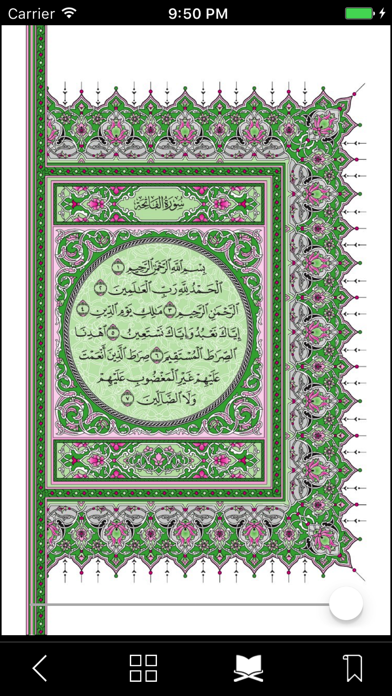 Carrier 9:50 PM
سورة الفاتحة
بِسْمِ ٱللَّهِ ٱلرَّحْمَٰنِ ٱلرَّحِيمِ ١
ٱلْحَمْدُ لِلَّهِ رَبِّ ٱلْعَٰلَمِينَ ٢
ٱلرَّحْمَٰنِ ٱلرَّحِيمِ ٣ مَٰلِكِ يَوْمِ ٱلدِّينِ ٤
إِيَّاكَ نَعْبُدُ وَإِيَّاكَ نَسْتَعِينُ ٥ ٱهْدِنَا
ٱلصِّرَٰطَ ٱلْمُسْتَقِيمَ ٦ صِرَٰطَ ٱلَّذِينَ أَنْعَمْتَ
عَلَيْهِمْ غَيْرِ ٱلْمَغْضُوبِ عَلَيْهِمْ
وَلَا ٱلضَّآلِّينَ ٧